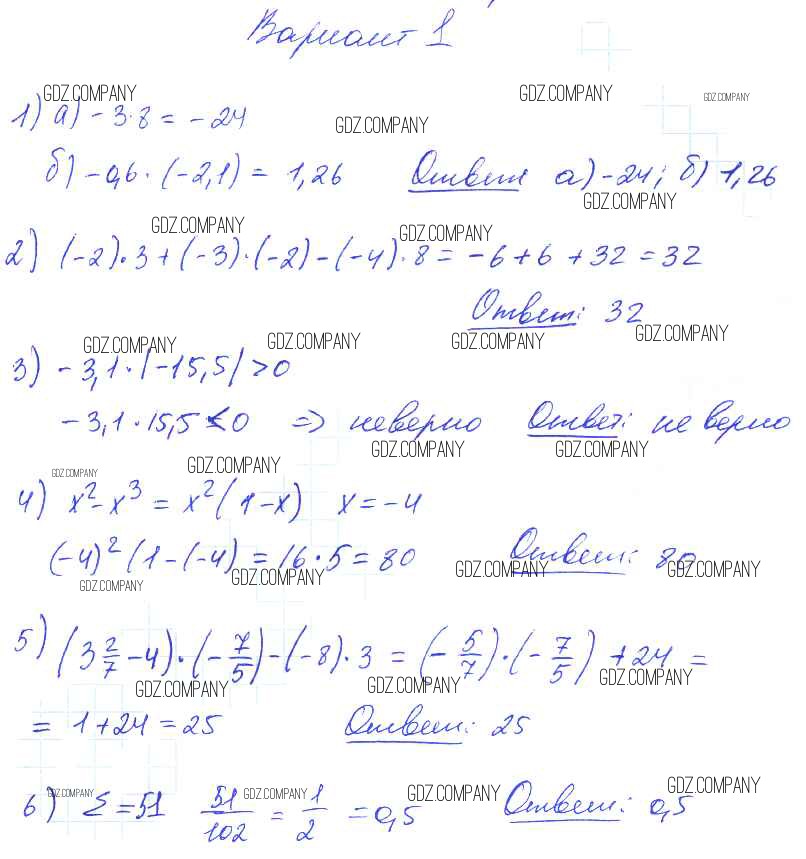 Вариант 1
GDZ.COMPANY GDZ.COMPANY GDZ.COMPANY
1) а) -3·8 = -24
GDZ.COMPANY
б) -0,6·(-2,1) = 1,26 Ответ а) -24; б) 1,26
GDZ.COMPANY
GDZ.COMPANY GDZ.COMPANY
2) (-2)·3+(-3)·(-2)-(-4)·8 = -6+6+32 = 32
Ответ: 32
GDZ.COMPANY GDZ.COMPANY GDZ.COMPANY GDZ.COMPANY
3) -3,1·|-15,5|>0
-3,1·15,5<0 => неверно Ответ: неверно
GDZ.COMPANY GDZ.COMPANY
GDZ.COMPANY GDZ.COMPANY
4) x²-x³ = x²(1-x) x=-4
(-4)²(1-(-4) = 16·5 = 80 Ответ: 80
GDZ.COMPANY GDZ.COMPANY GDZ.COMPANY GDZ.COMPANY
5) (3 2/7 -4)·(-7/5)-(-8)·3 = (-5/7)·(-7/5)+24 =
GDZ.COMPANY GDZ.COMPANY GDZ.COMPANY
= 1+24 = 25 Ответ: 25
GDZ.COMPANY GDZ.COMPANY GDZ.COMPANY GDZ.COMPANY
6) Σ=51 51/102 = 1/2 = 0,5 Ответ: 0,5